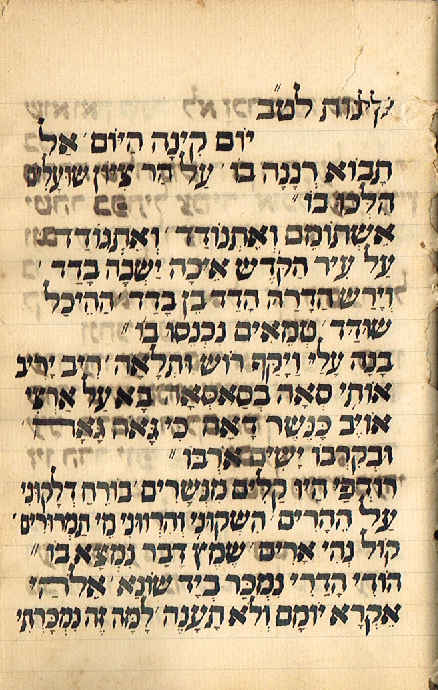 קינות לט״ב
יום קינה היום׳ אל
תבוא רננה בו׳ על הר ציון שועלים
הלכו בו״
אשתומם ואתנודד׳ ואתגודד
על עיר הקדש איכה ישבה בדד׳
ההיכל
שודד׳ טמאים נכנסו בו״
בנה עלי ויקף רוש ותלאה׳ ריב יריב
אותי סאה בסאסאה׳ בא על ארצי
אויב כנשר דאה׳ כי גאה גאה
ובקרבו ישים ארבו״
רודפי היו קלים מנשרים׳ דלקוני
על ההרים׳ השקוני והרווני מי תמרורים׳
קול נהי ארים׳ שמץ דבר נמצא בו״
הודי הדרי נמכר ביד שונא׳ אלהי
אקרא יומם ולא תענה׳ למה זה נמכרתי